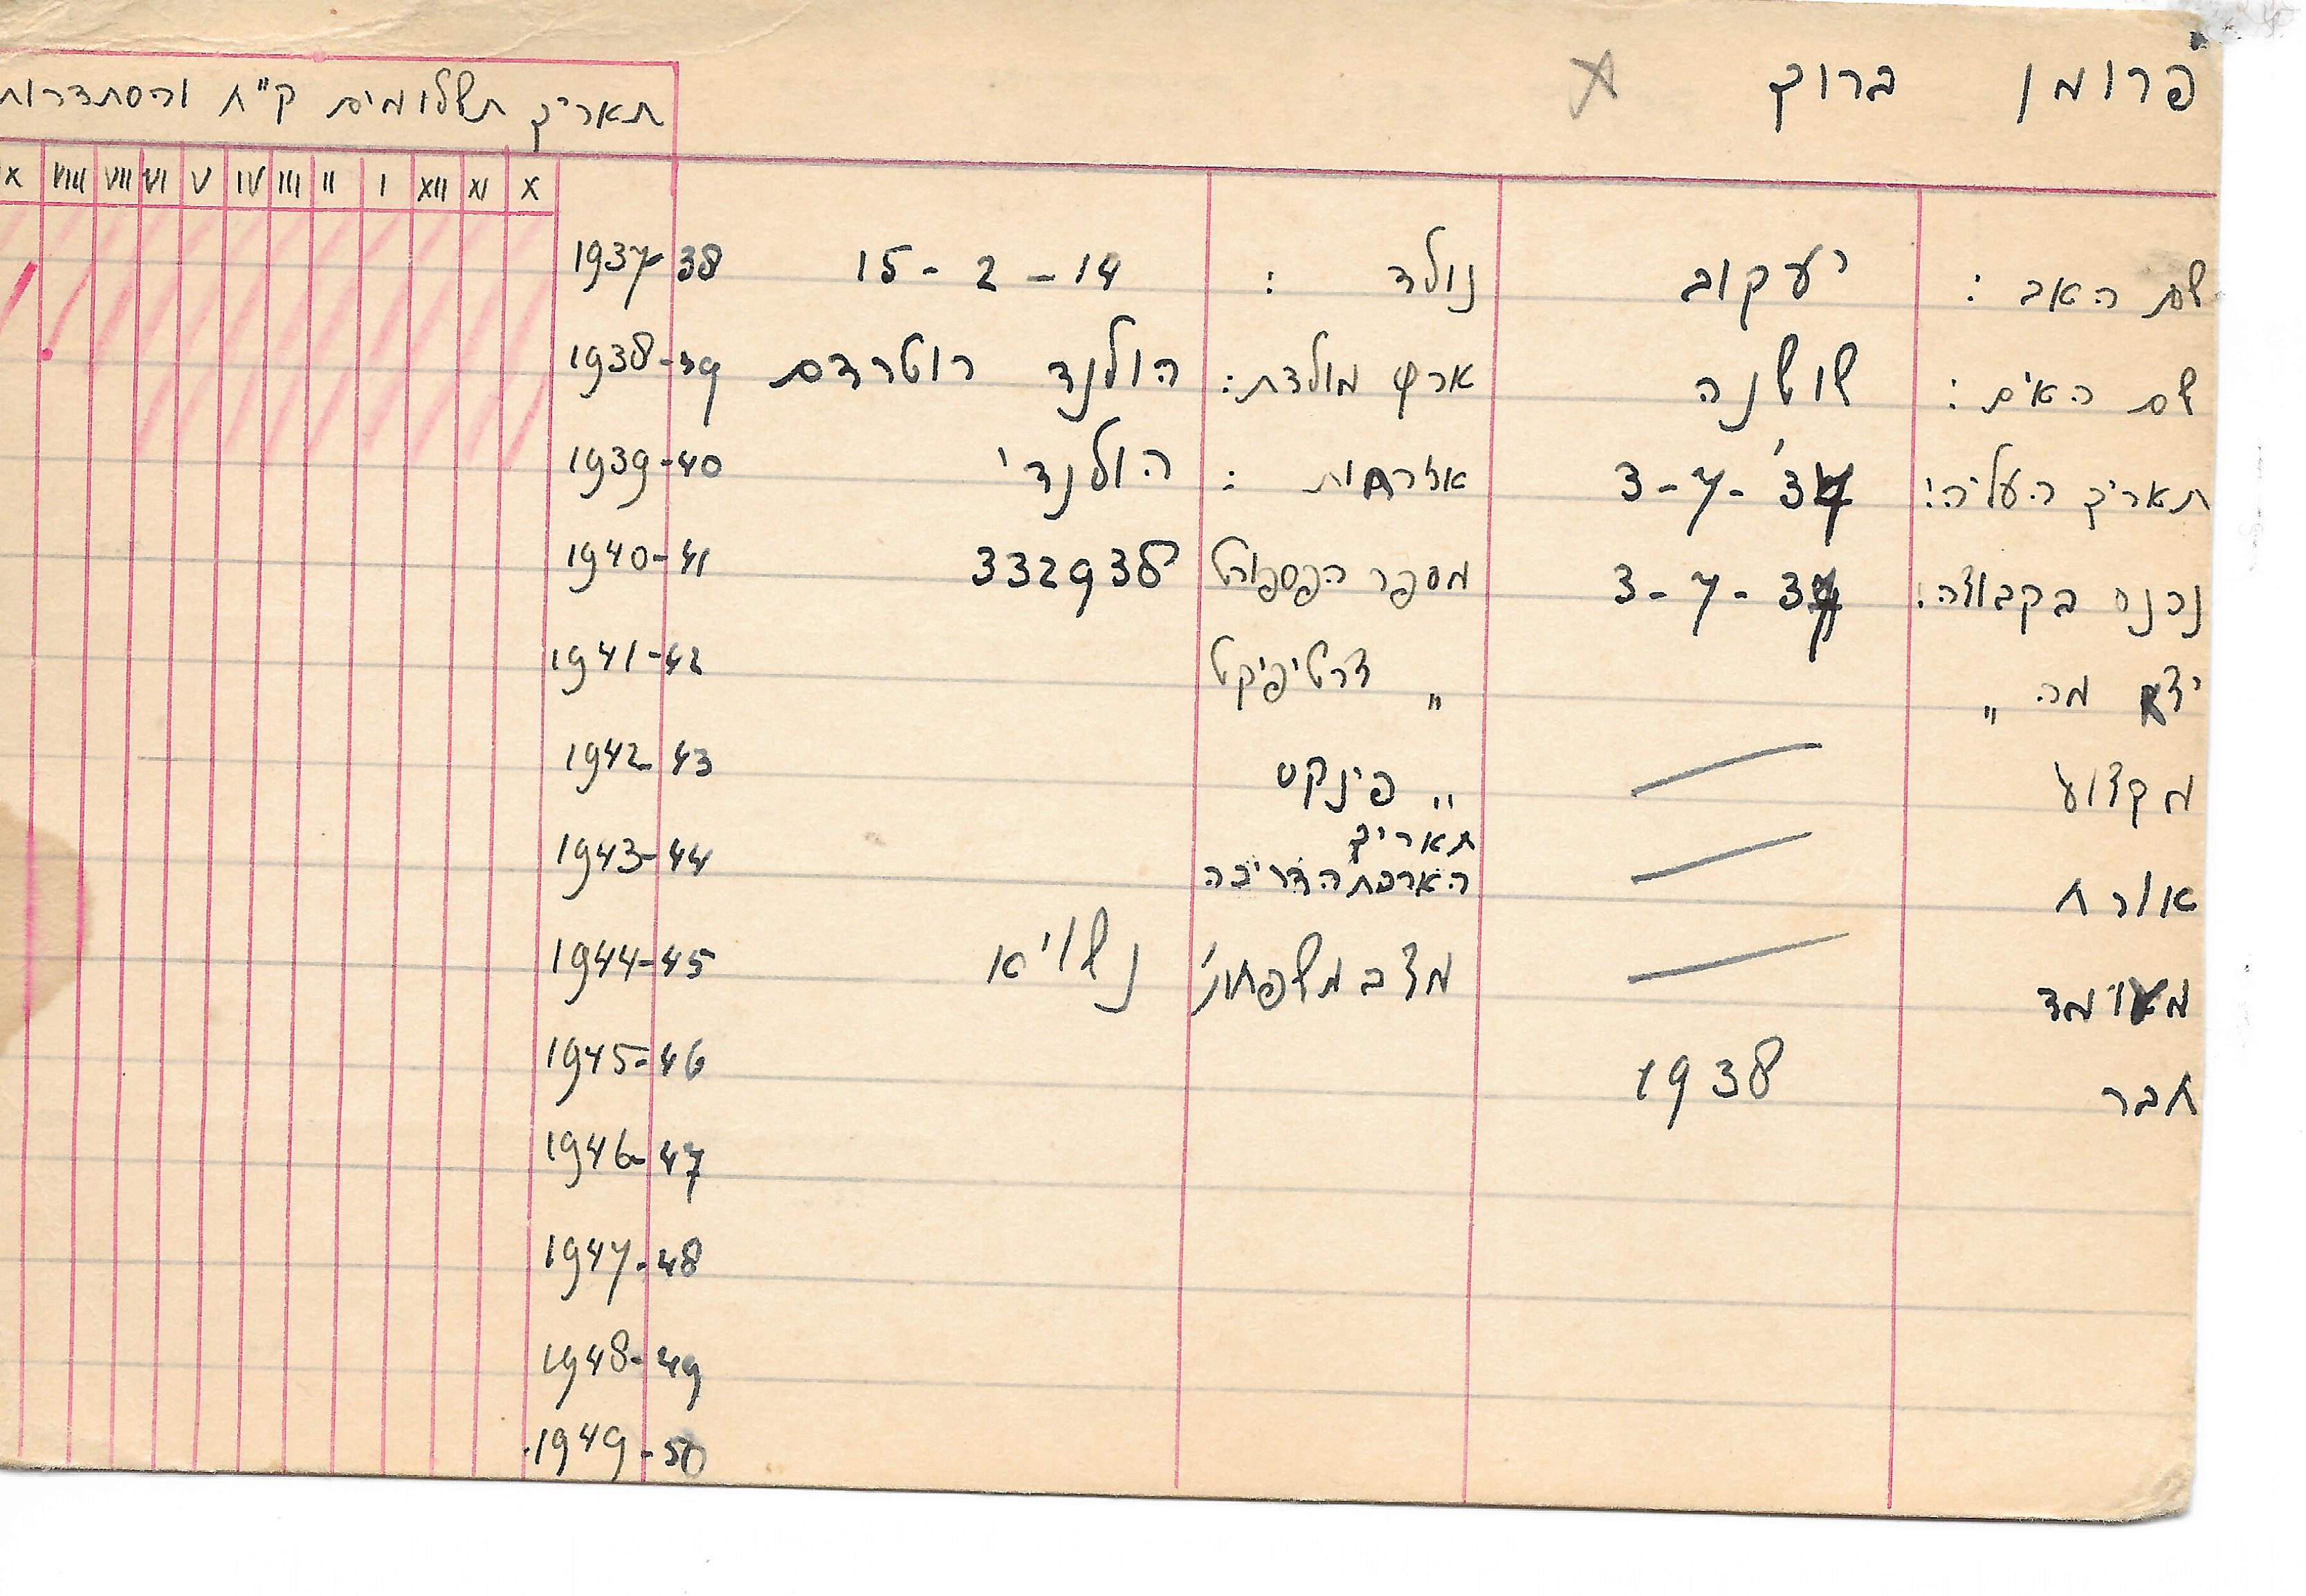 פרומן ברוך X
תאריך תשלומים ק"ח והסתדרות
X XI XII I II III IV V VI VII VIII
שם האב : יעקוב נולד : 15-2-14 1937-38
שם האים : שושנה ארץ מולדת: הולנד רוטרדם 1938-39
תאריך העליה: 3-7-'37 אזרחות : הולנדי 1939-40
נכנס בקבוצה: 3-7-37 מספר הפספורט 332938 1940-41
יצא מה " " צרטיפיקט 1941-42
מקצוע " פינקס 1942-43
אורח תאריך הארכת הדריכה 1943-44
מצב משפחתי נשוי א 1944-45
מאומד 1945-46
חבר 1938
1946-47
1947-48
1948-49
1949-50